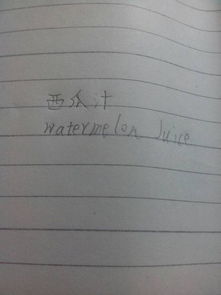 西瓜汁
watermelon Juice